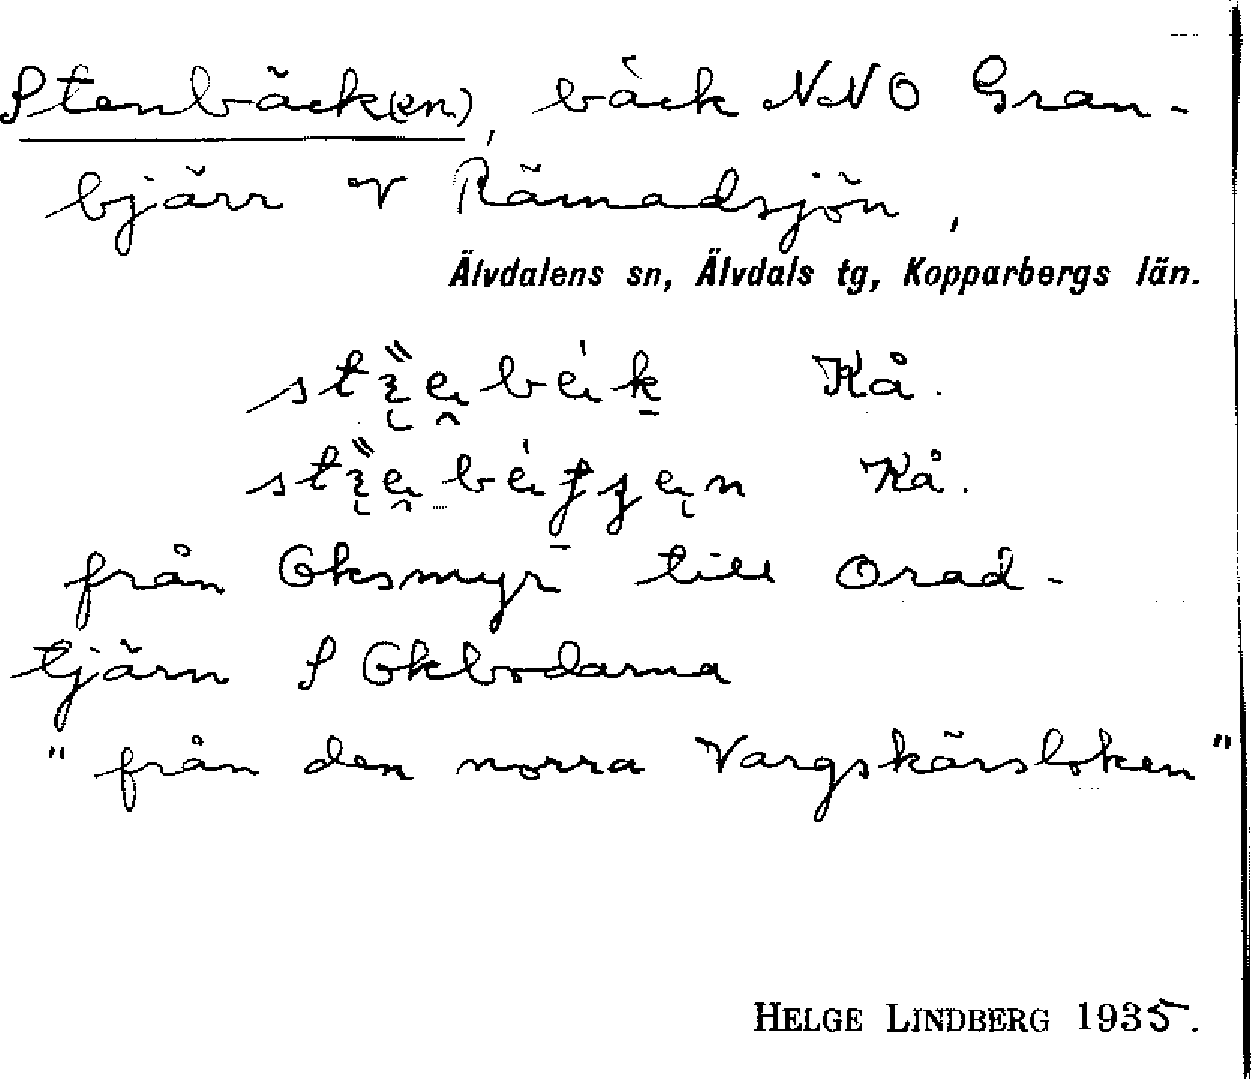 Stenbäck(en), bäck NNO Gran-
bjärr V Rämadsjön,
Älvdalens sn, Älvdals tg, Kopparbergs län.
Kå.
Kå.
från Oksmyr till Orad-
tjärn S Okbodarna
" från den norra Vargskärsloken "
HELGE LINDBERG 1935.